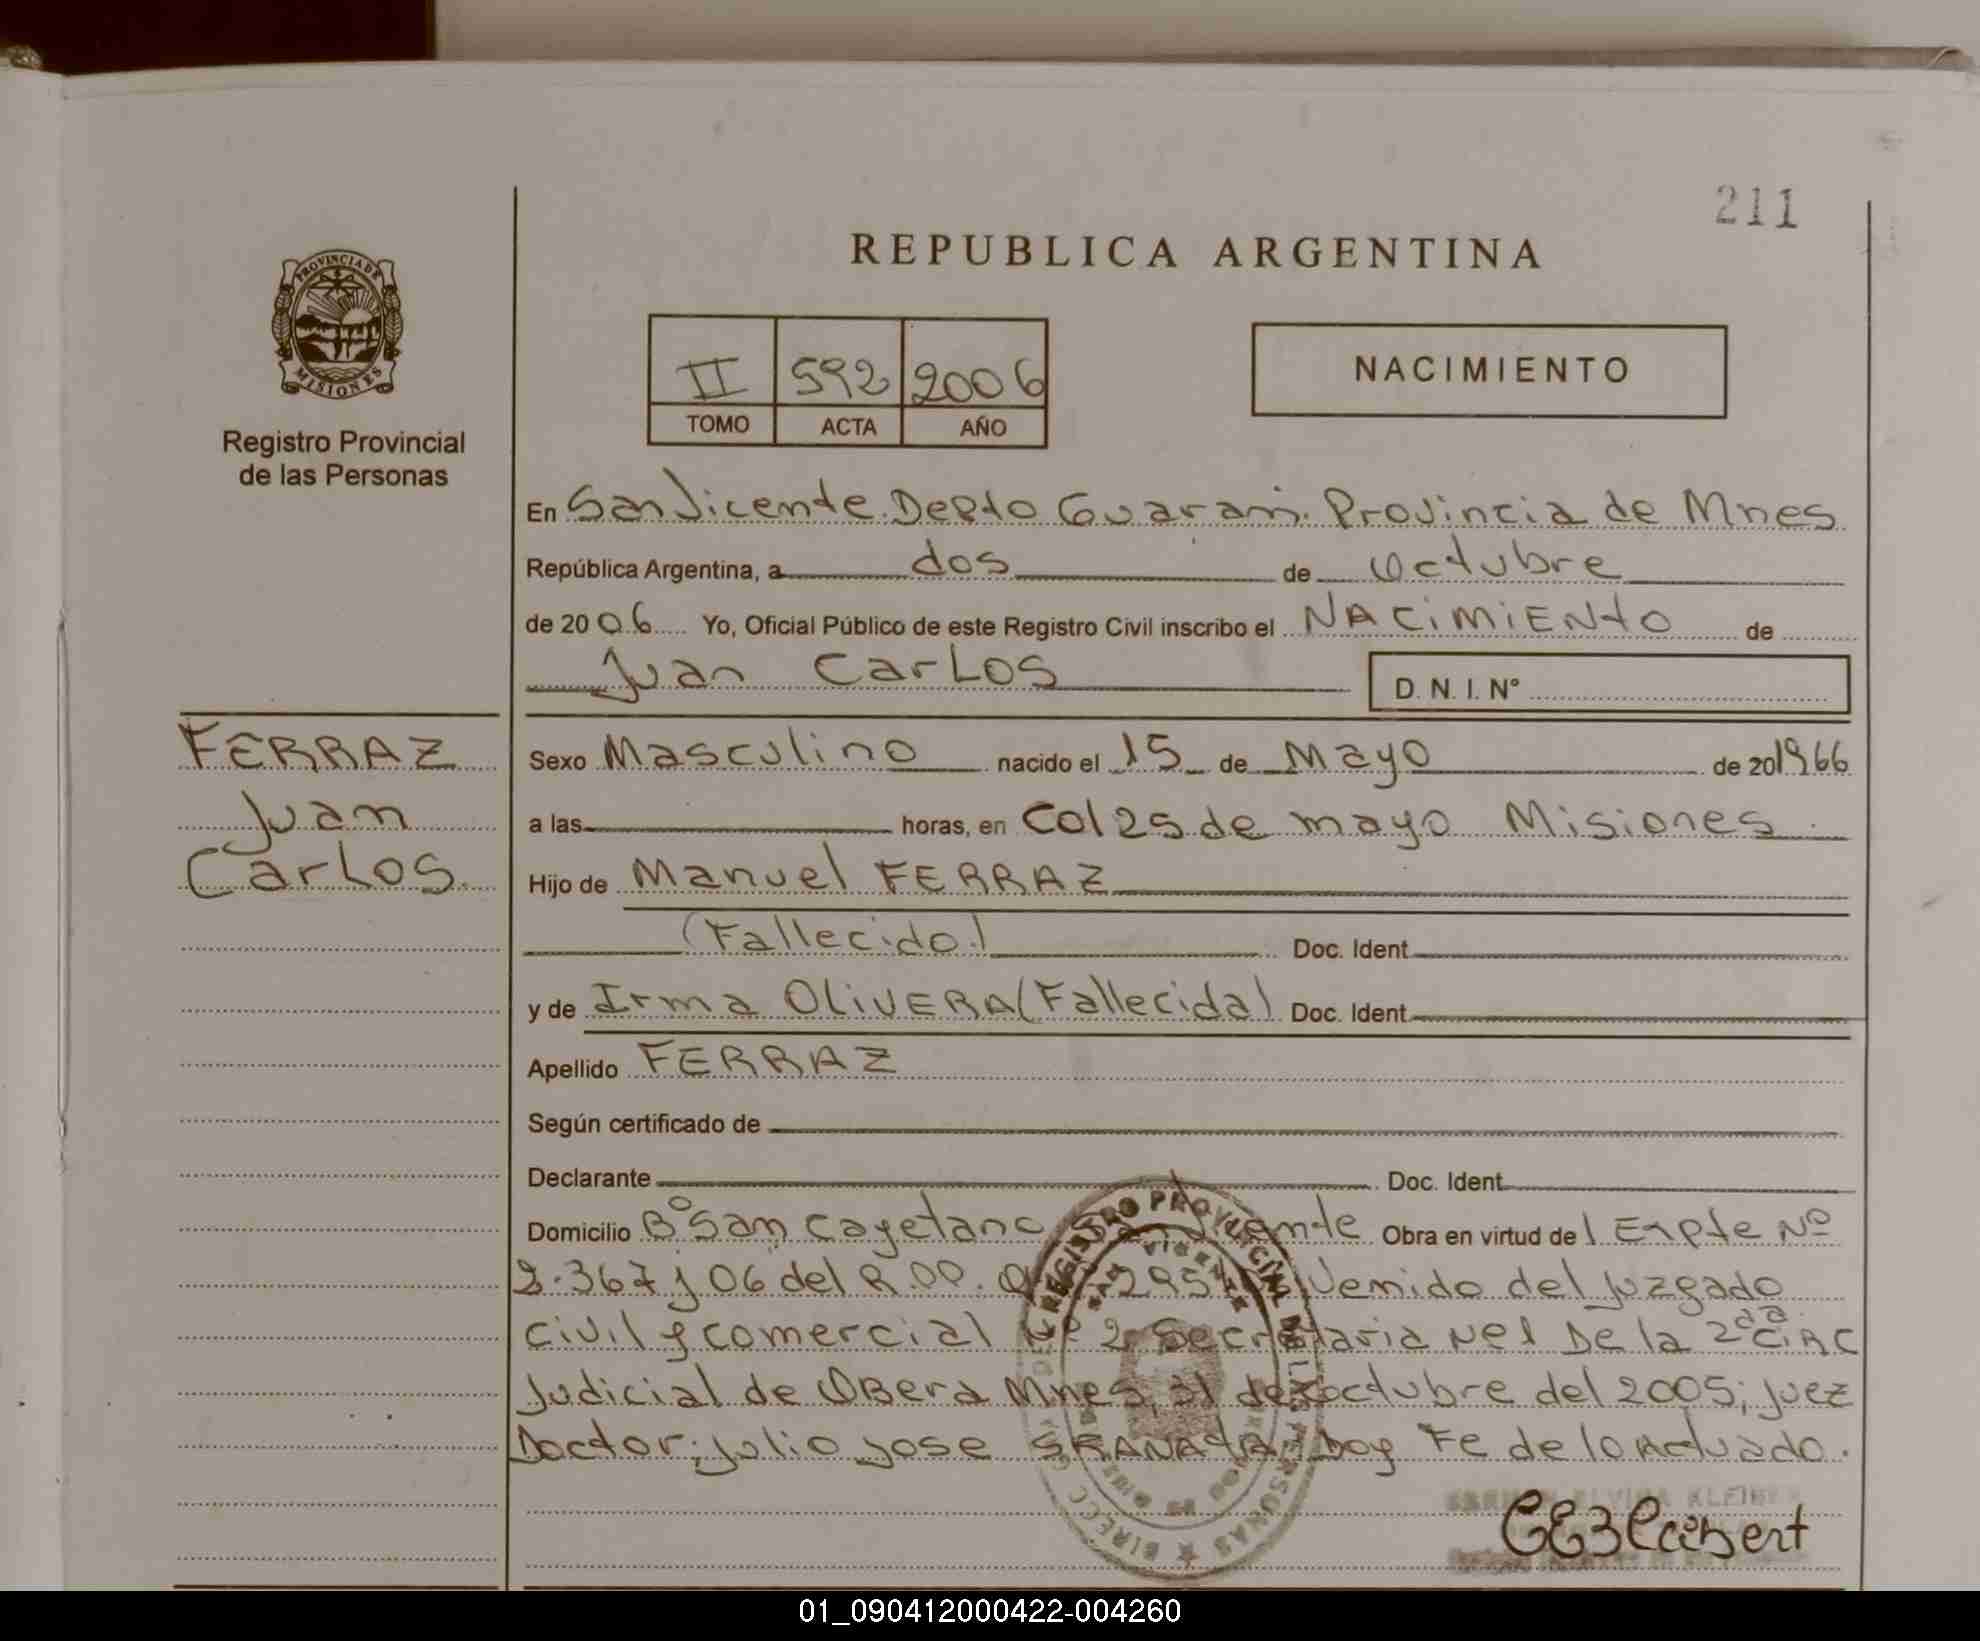 211
REPUBLICA ARGENTINA
PROVINCIA DE
MISIONES
Registro Provincial
de las Personas
II 592 2006
TOMO ACTA AÑO
NACIMIENTO
En San Vicente. Depto Guarani. Provincia de Mnes
República Argentina, a dos de Octubre
de 2006 Yo, Oficial Público de este Registro Civil inscribo el NACIMIENTO de
Juan Carlos
D. N. I. Nº
FERRAZ
Juan
Carlos.
Sexo Masculino nacido el 15 de Mayo de 201966
a las horas, en Col 25 de mayo Misiones
Hijo de Manuel FERRAZ
(Fallecido) Doc. Ident.
y de Irma OLIVERA (Fallecida) Doc. Ident.
Apellido FERRAZ
Según certificado de
Declarante Doc. Ident.
Domicilio Bº San Cayetano Vicente Obra en virtud del Expte Nº
2.367/06 del R.P.P. venido del Juzgado
Civil y comercial Nº 2 Secretaria Nº1 De la 2da CIRC
Judicial de OBera Mnes, 31 de octubre del 2005; Juez
Doctor; Julio Jose Doy Fe de lo Actuado.
KLEIN
01_090412000422-004260